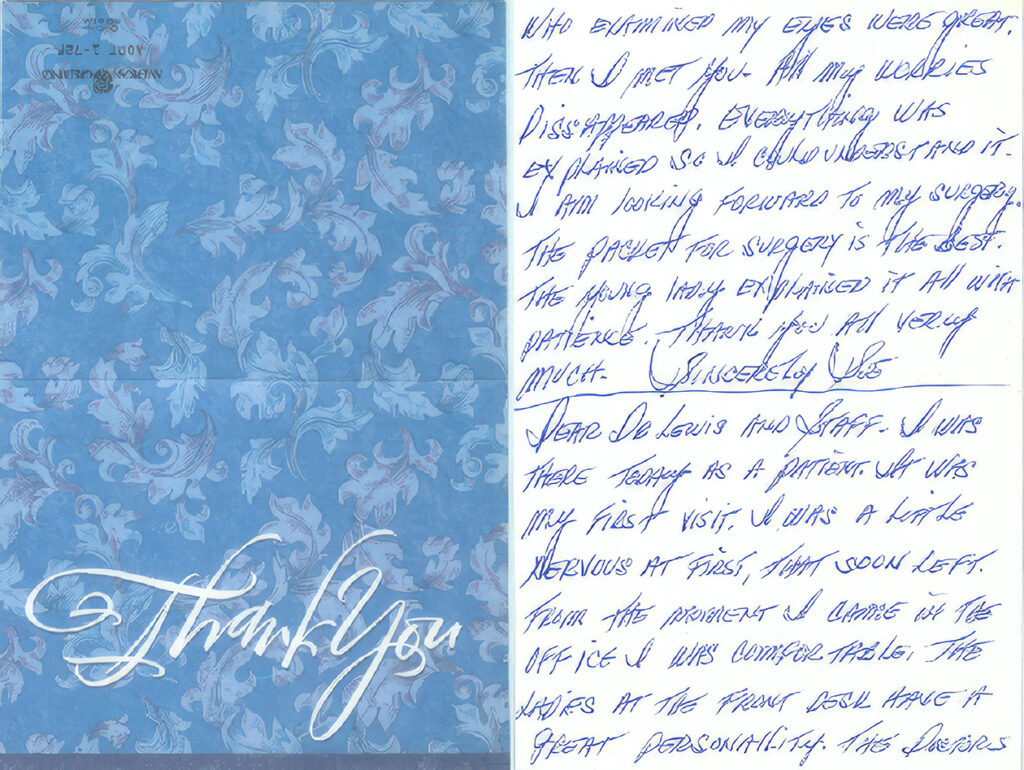 AMERICAN GREETINGS
Thank You
WHO EXAMINED MY EYES WERE GREAT.
THEN I MET YOU. All MY WORRIES
DISSAPPEARED. EVERYTHING WAS
EXPLAINED SO I COULD UNDERSTAND IT.
I AM lOOKING FORWARD TO MY SURGERY.
THE PACKET FOR SURGERY IS THE BEST.
THE YOUNG lADY EXPLAINED IT All WITH
PATIENCE. THANK YOU All VERY
MUCH. SINCERELY
DEAR DR LEWIS AND STAFF. I WAS
THERE TODAY AS A PATIENT. IT WAS
MY FIRST VISIT. I WAS A LITTLE
NERVOUS AT FIRST, THAT SOON LEFT.
FROM THE MOMENT I CAME IN THE
OFFICE I WAS COMFORTABLE. THE
LADIES AT THE FRONT DESK HAVE A
GREAT PERSONAlITY. THE DOCTORS